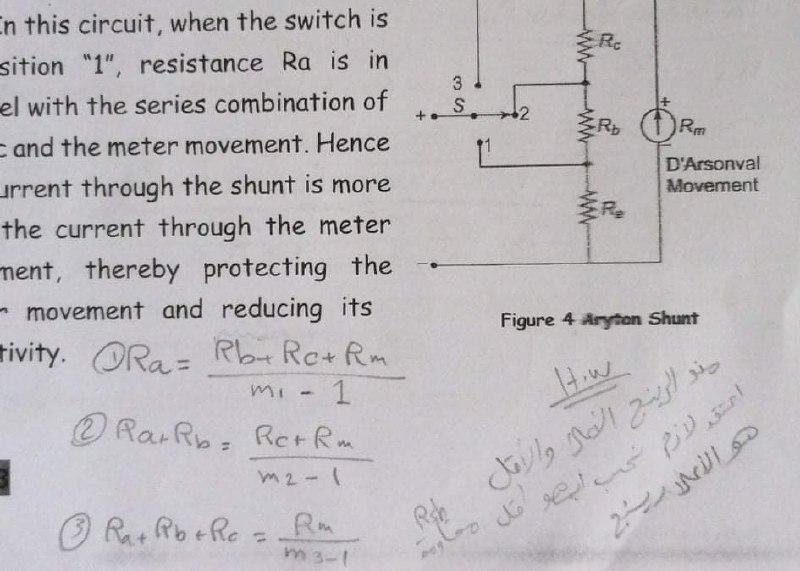 In this circuit, when the switch is
sition "1", resistance Ra is in
el with the series combination of
c and the meter movement. Hence
urrent through the shunt is more
the current through the meter
ment, thereby protecting the
r movement and reducing its
tivity.
① Ra = Rb + Rc + Rm
m1 - 1
② Ra+Rb = Rc + Rm
m2 - 1
③ Ra + Rb + Rc = Rm
m3-1
Rc
3
S
+
2
Rb
+
Rm
1
D'Arsonval
Movement
Ra
Figure 4 Aryton Shunt
H.W
منو الرينج العالي والأقل
اعتقد لازم نحسب
Rsh
أقل مقاومة
هو الأعلى رينج
3